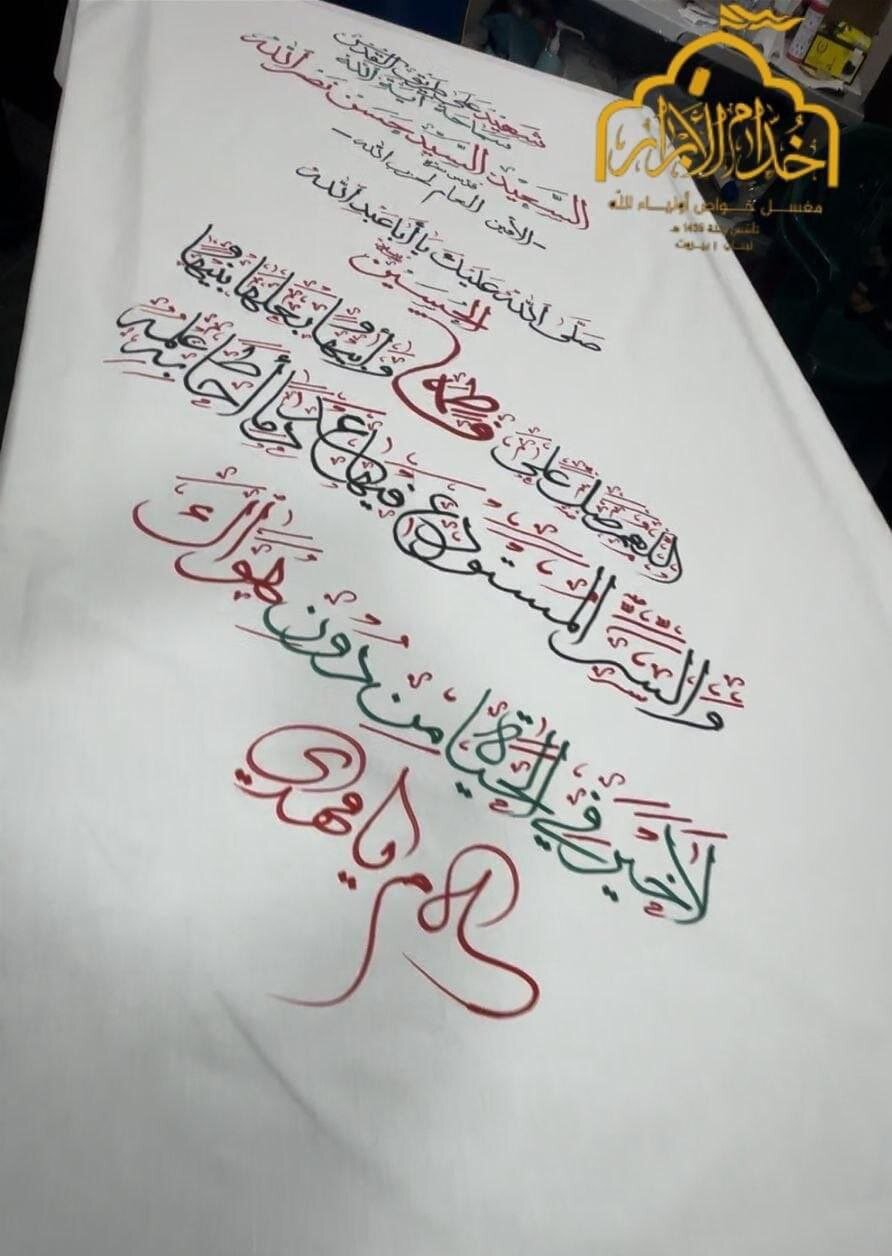 شهيد على طريق القدس
سماحة آية الله
السيد السعيد حسن نصر الله
قدس سره
-الأمين العام لحزب الله-
صلى الله عليك يا أبا عبد الله
الحسين
اللهم صل على فاطمة وأبيها وبعلها وبنيها
والسر المستودع فيها عدد ما أحاط به علمك
لا خير في الحياة من دون هواك
يا مهدي
خدام الأبرار
مغسل خواص أولياء الله
تأسس سنة 1436 هـ
لبنان | بيروت